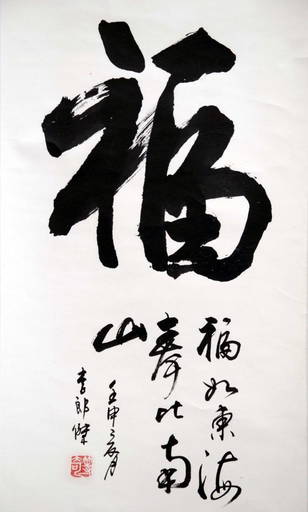 福
福如東海
壽比南
山
壬申 月
郎傑